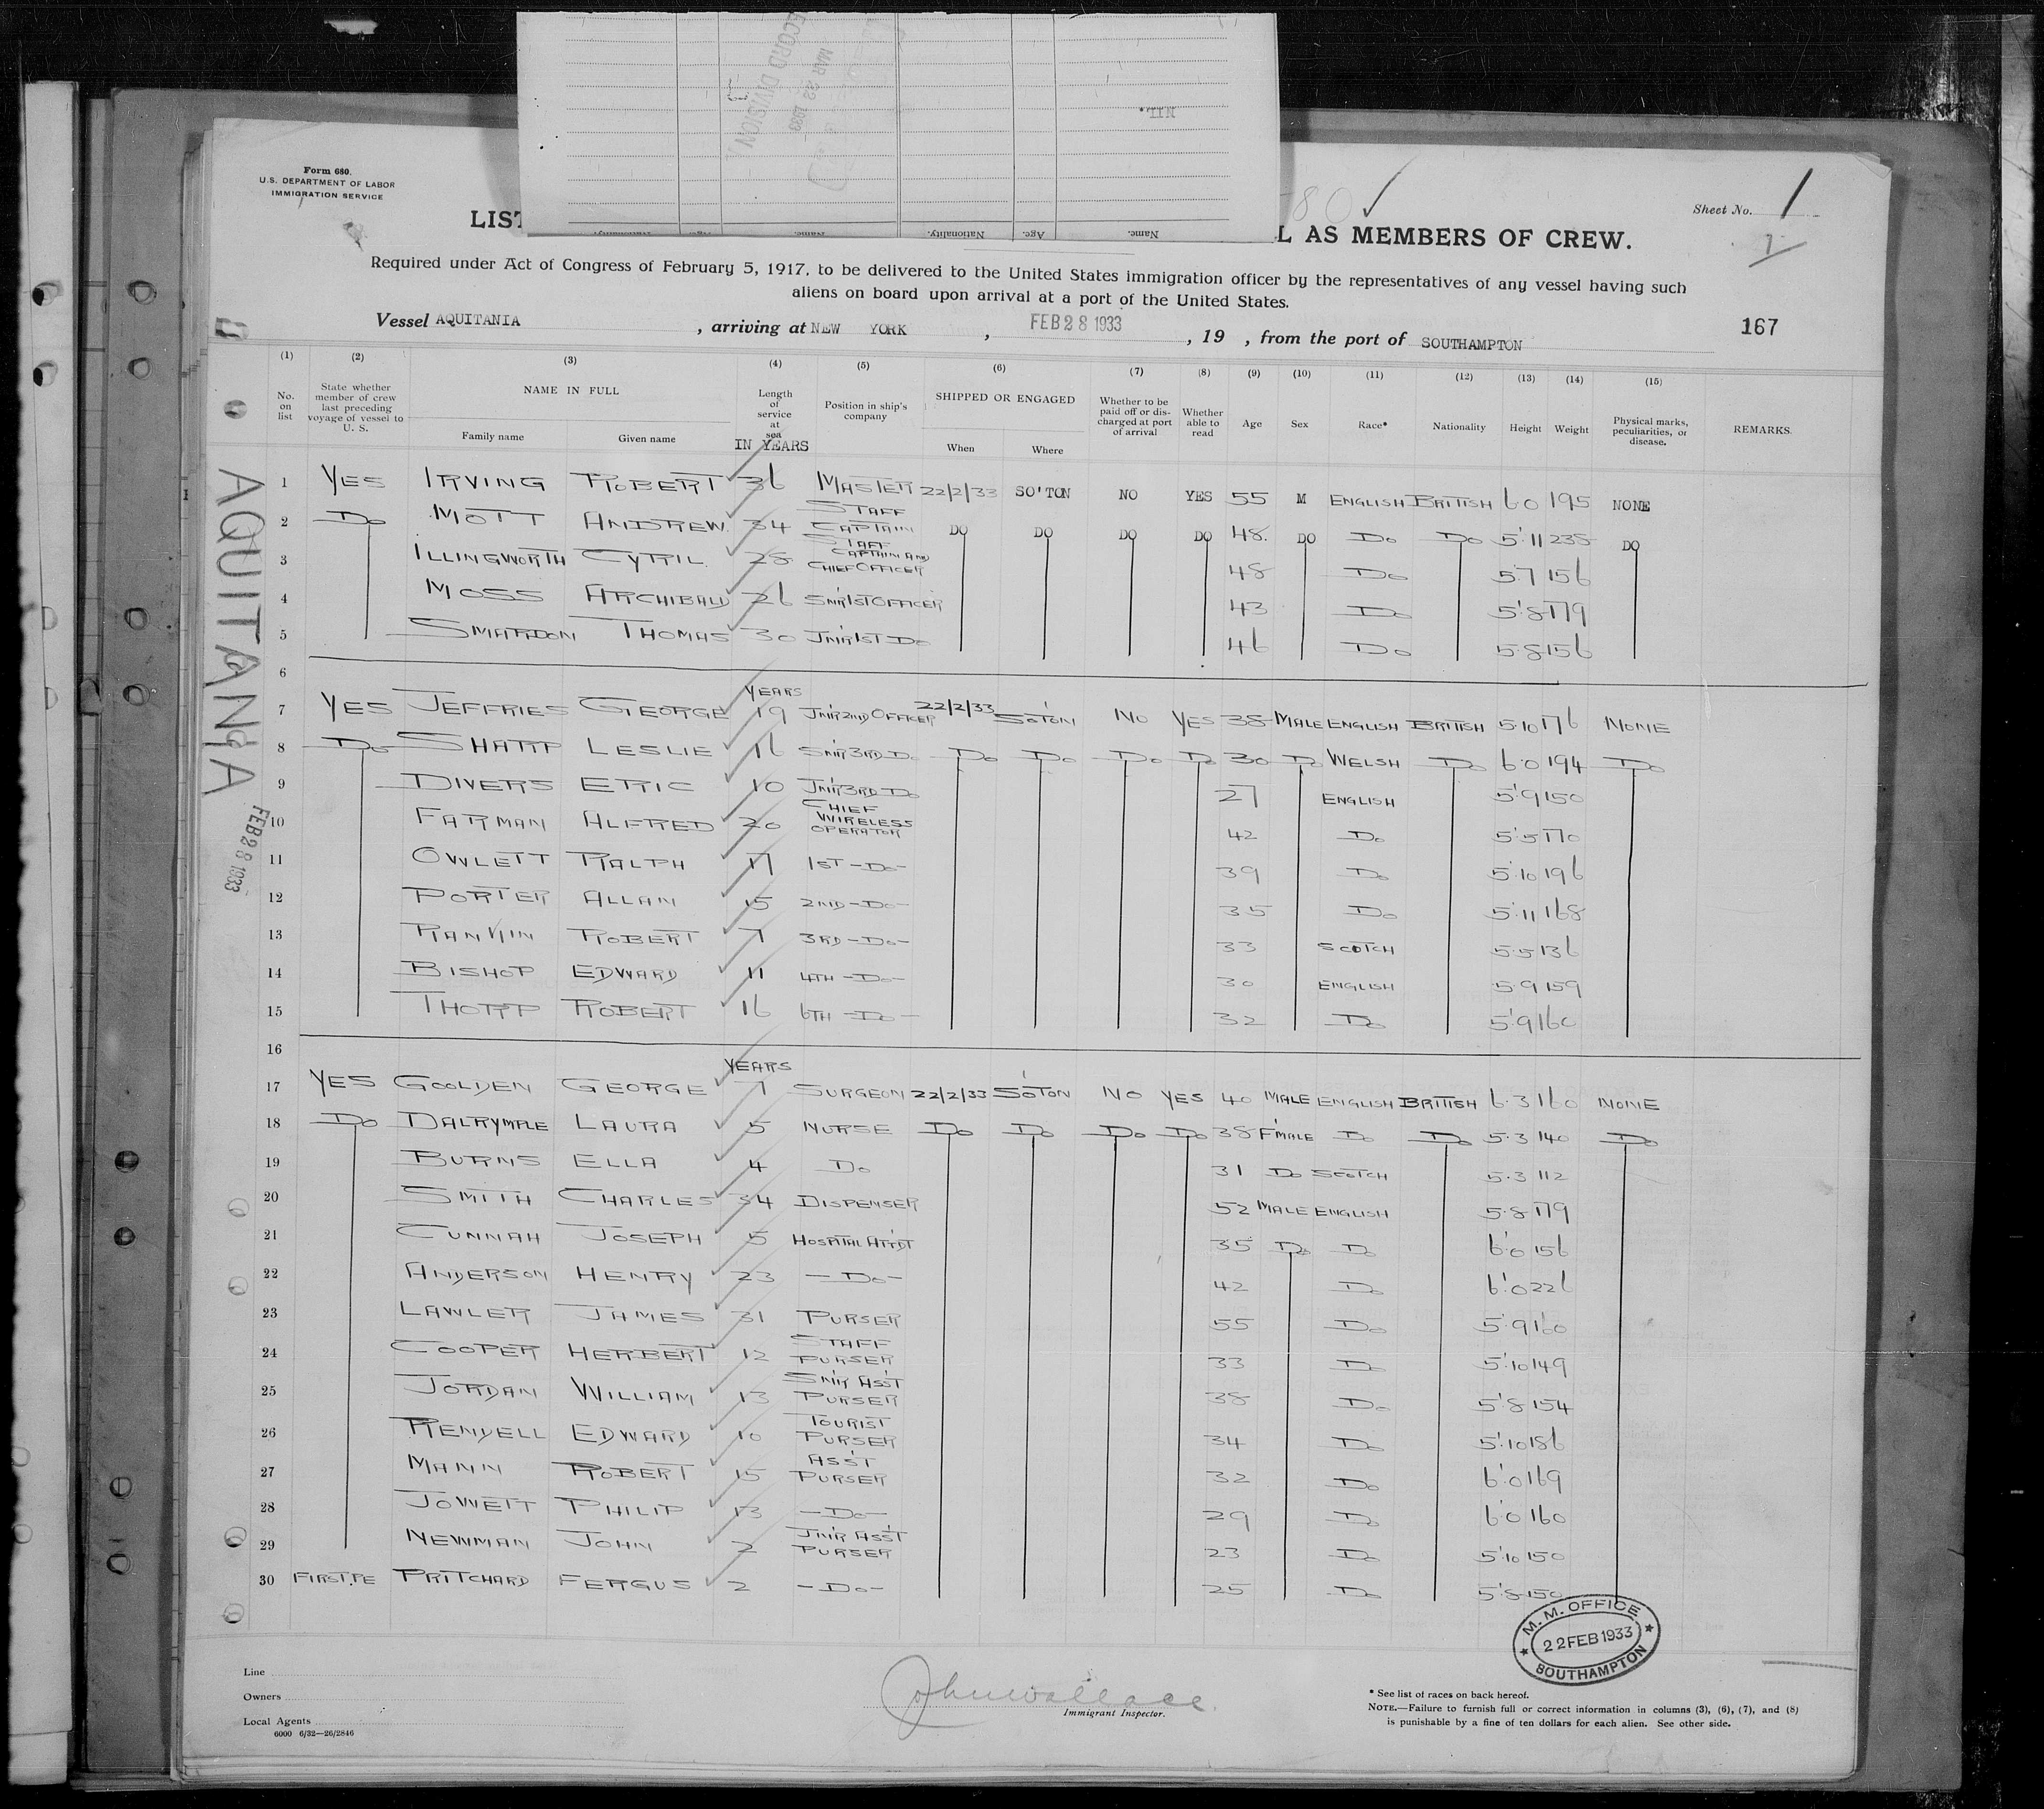 RECORD DIVISION
MAR 22 1933
NIL.
Name. Age. Nationality. Name.
Form 680.
U.S. DEPARTMENT OF LABOR
IMMIGRATION SERVICE
80 ✓
Sheet No. 1
LIST
L AS MEMBERS OF CREW.
Required under Act of Congress of February 5, 1917, to be delivered to the United States immigration officer by the representatives of any vessel having such
aliens on board upon arrival at a port of the United States.
Vessel AQUITANIA, arriving at NEW YORK, FEB 28 1933, 19 , from the port of SOUTHAMPTON
167
(1) (2) (3) (4) (5) (6) (7) (8) (9) (10) (11) (12) (13) (14) (15)
No. on list
State whether member of crew last preceding voyage of vessel to U. S.
NAME IN FULL
Family name Given name
Length of service at sea
IN YEARS
Position in ship's company
SHIPPED OR ENGAGED
When Where
Whether to be paid off or discharged at port of arrival
Whether able to read
Age Sex Race* Nationality Height Weight
Physical marks, peculiarities, or disease.
REMARKS.
1 YES IRVING ROBERT 36 MASTER 22/2/33 SO'TON NO YES 55 M ENGLISH BRITISH 6 0 195 NONE
2 Do MOTT ANDREW 34 STAFF CAPTAIN DO DO DO DO 48. DO Do Do 5'11 235 DO
3 ILLINGWORTH CYRIL. 28 STAFF CAPTAIN AND CHIEF OFFICER 48 Do 5.7 156
4 MOSS ARCHIBALD 26 SNR 1ST OFFICER 43 Do 5'8 179
5 THOMAS 30 JNR 1ST Do 46 Do 5.8 156
6
YEARS
7 YES JEFFRIES GEORGE 19 JNR 2ND OFFICER 22/2/33 SO'TON NO YES 38 MALE ENGLISH BRITISH 5.10 176 NONE
8 Do SHARP LESLIE 16 SNR 3RD Do Do Do Do Do 30 Do WELSH Do 6.0 194 Do
9 DIVERS ERIC 10 JNR 3RD Do 27 ENGLISH 5'9 150
10 FARMAN ALFRED 20 CHIEF WIRELESS OPERATOR 42 Do 5'5 170
11 OWLETT RALPH 17 1ST -Do- 39 Do 5.10 196
12 PORTER ALLAN 15 2ND -Do- 35 Do 5.11 168
13 RANKIN ROBERT 7 3RD -Do- 33 SCOTCH 5.5 136
14 BISHOP EDWARD 11 4TH -Do- 30 ENGLISH 5.9 159
15 THORP ROBERT 16 6TH -Do- 32 Do 5'9 160
16
YEARS
17 YES GOOLDEN GEORGE 7 SURGEON 22/2/33 SO'TON NO YES 40 MALE ENGLISH BRITISH 6.3 160 NONE
18 Do DALRYMPLE LAURA 5 NURSE Do Do Do Do 38 F'MALE Do Do 5.3 140 Do
19 BURNS ELLA 4 Do 31 Do SCOTCH 5.3 112
20 SMITH CHARLES 34 DISPENSER 52 MALE ENGLISH 5.8 179
21 CUNNAH JOSEPH 5 HOSPITAL ATT'DT 35 Do Do 6'0 156
22 ANDERSON HENRY 23 -Do- 42 Do 6'0 226
23 LAWLER JAMES 31 PURSER 55 Do 5'9 160
24 COOPER HERBERT 12 STAFF PURSER 33 Do 5'10 149
25 JORDAN WILLIAM 13 SNR ASS'T PURSER 38 Do 5'8 154
26 RENDELL EDWARD 10 TOURIST PURSER 34 Do 5'10 186
27 MANN ROBERT 15 ASS'T PURSER 32 Do 6'0 169
28 JOWETT PHILIP 13 -Do- 29 Do 6'0 160
29 NEWMAN JOHN 2 JNR ASS'T PURSER 23 Do 5'10 150
30 PRITCHARD FERGUS 2 -Do- 25 Do 5'8 150
AQUITANIA
FEB 28 1933
M. M. OFFICE
22 FEB 1933
SOUTHAMPTON
Line
Owners
Local Agents
6000 6/32—26/2846
John Wallace
Immigrant Inspector.
* See list of races on back hereof.
NOTE.—Failure to furnish full or correct information in columns (3), (6), (7), and (8)
is punishable by a fine of ten dollars for each alien. See other side.